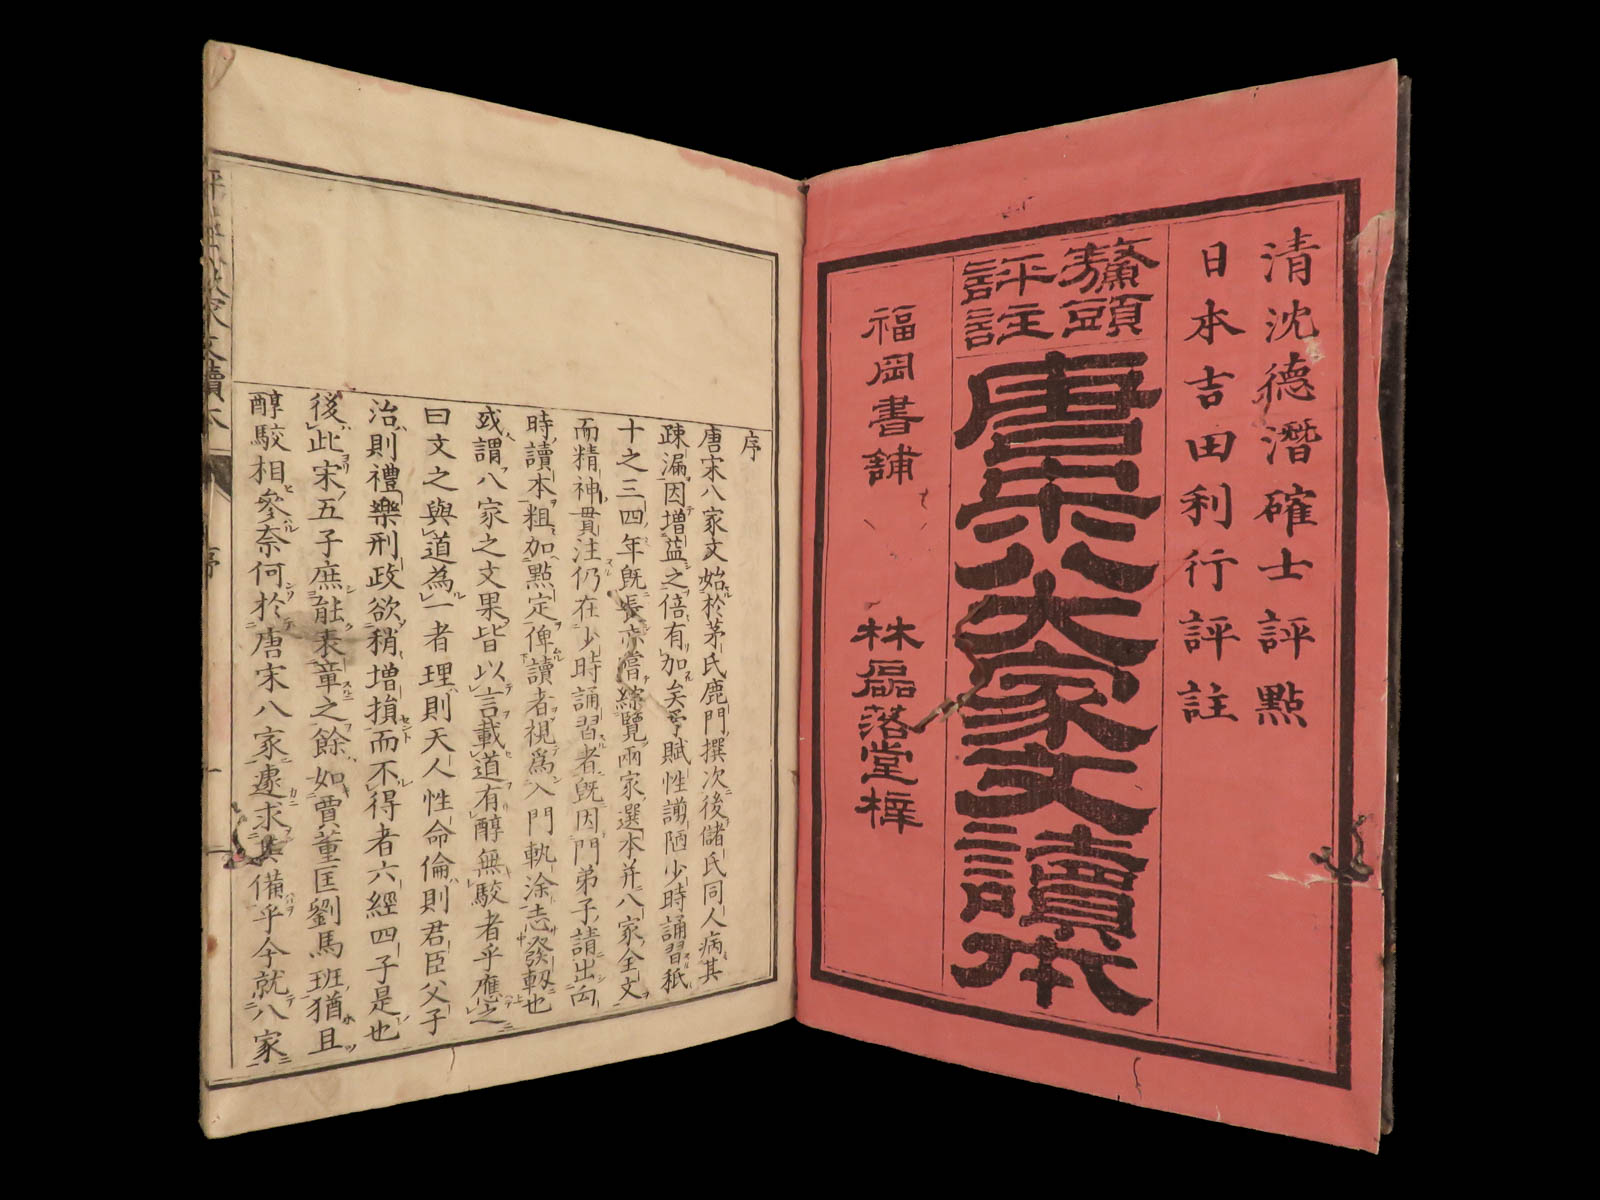 清沈德潛確士評點
日本吉田利行評註
鼇頭
評註
唐宋八大家文讀本
福岡書舖 林磊落堂梓
序
唐宋八家文始於茅氏鹿門撰次後儲氏同人病其
疎漏因增益之倍有加矣予賦性謭陋少時誦習秖
十之三四年既長亦嘗綜覽兩家選本并八家全文
而精神貫注仍在少時誦習者既因門弟子請出向
時讀本粗加點定俾讀者視爲入門軌涂志發軔也
或謂八家之文果皆以言載道有醇無駁者乎應之
曰文之與道為一者理則天人性命倫則君臣父子
治則禮樂刑政欲稍增損而不得者六經四子是也
後此宋五子庶能表章之餘如賈董匡劉馬班猶且
醇駁相參奈何於唐宋八家遽求其備乎今就八家
家文讀本
序
一